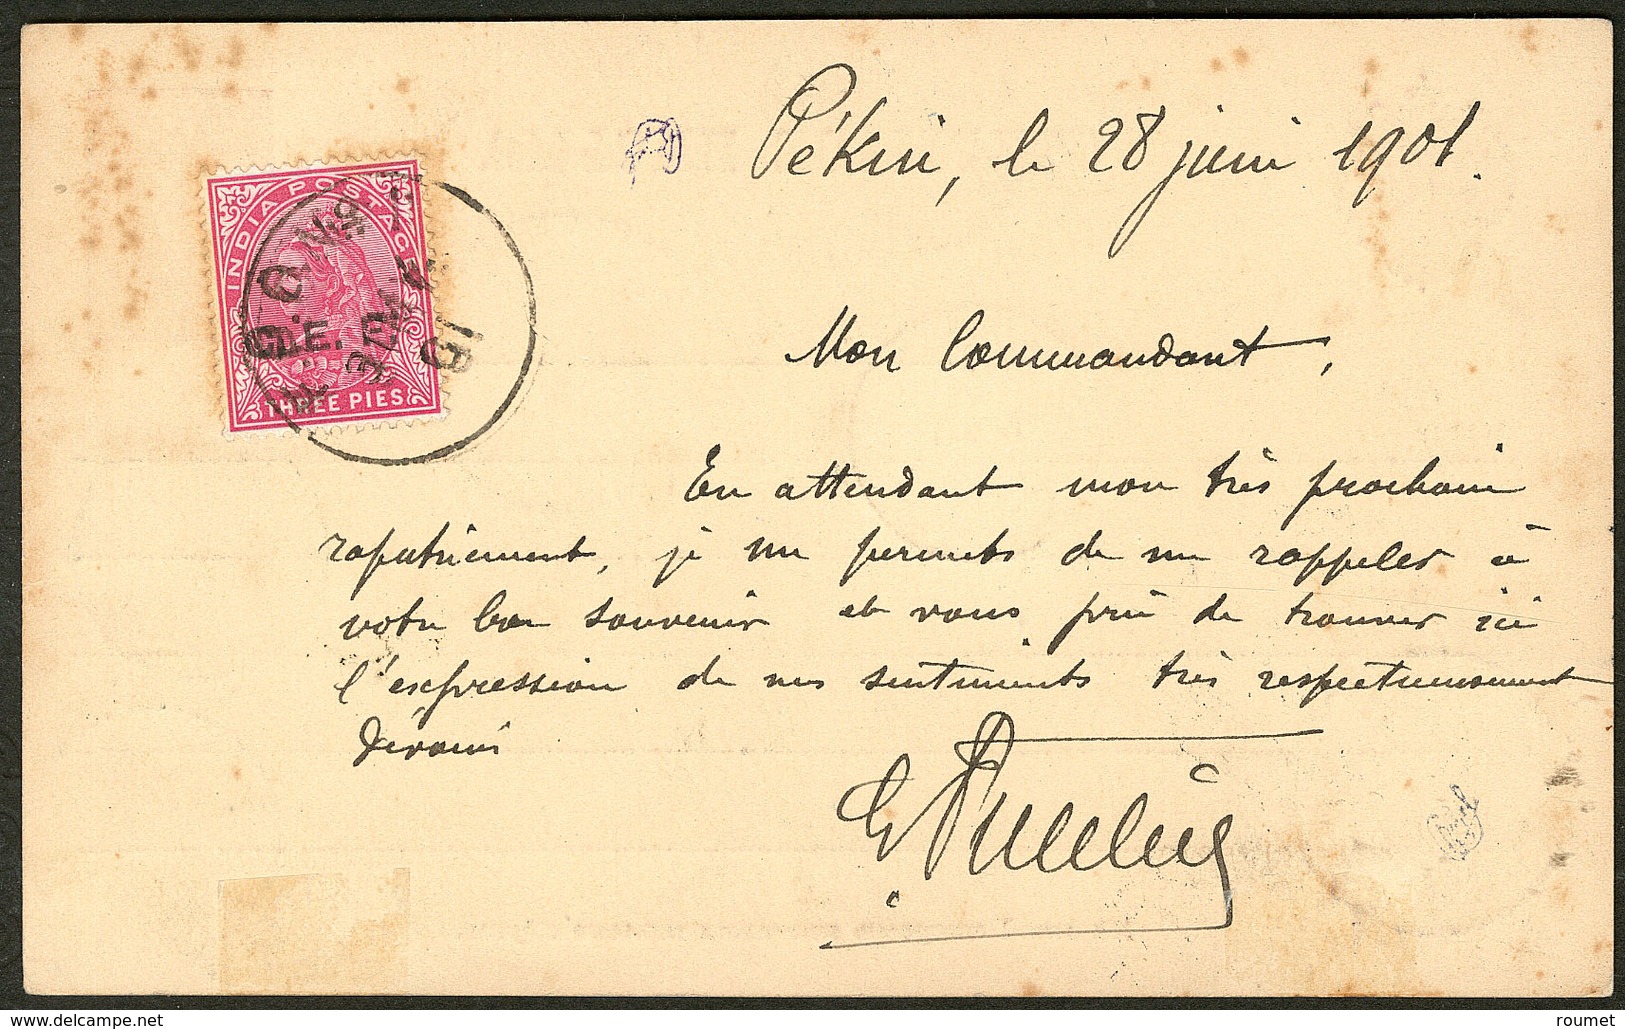 Pékin, le 28 juin 1901.
INDIA POSTAGE
C.E.F.
THREE PIES
Mon Commandant,
En attendant mon très prochain
rapatriement, je me permets de me rappeler à
votre bon souvenir et vous prie de trouver ici
l'expression de mes sentiments très respectueusement
dévoués
delcampe.net
roumet